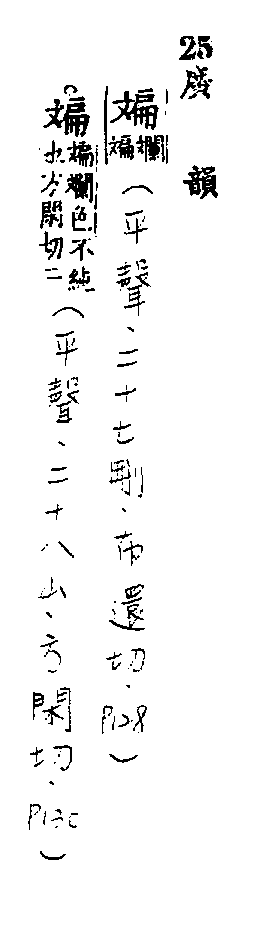 25廣韻
斒斒斕（平聲、二十七刪、布還切、P128）
斒斒斕色不純也方閑切二（平聲、二十八山、方閑切、P130）